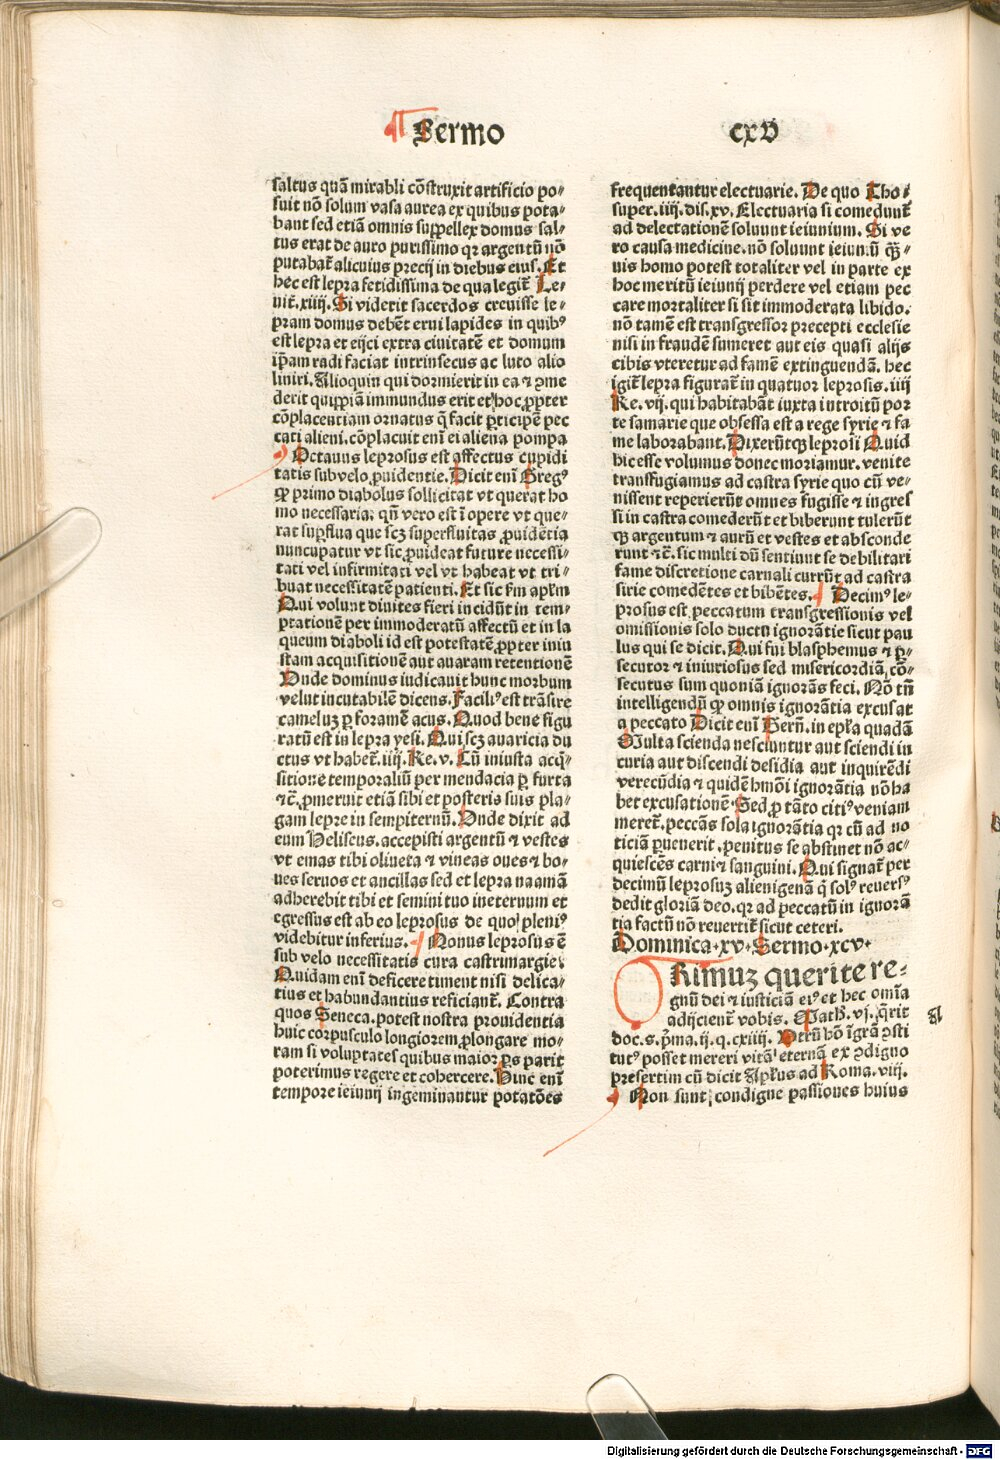 Sermo
cxv
saltus quā mirabli cōstruxit artificio po⸗
suit nō solum vasa aurea ex quibus pota⸗
bant sed etiā omnis suppellex domus sal⸗
tus erat de auro purissimo qꝛ argentū nō
putabat̄ alicuius precij in diebus eius. Et
hec est lepra fetidissima de qua legit̄ Le⸗
uit̄. xiiij. Si viderit sacerdos creuisse le⸗
pram domus debēt erui lapides in quibꝰ
est lepra et eijci extra ciuitatē et domum
ip̄am radi faciat intrinsecus ac luto alio
liniri. Alioquin qui dormierit in ea ⁊ ꝯme
derit quippiā immundus erit et hoc ꝓpter
cōplacentiam ornatus q̄ facit ꝑticipē pec
cati alieni. cōplacuit eni ei aliena pompa
Octauus leprosus est affectus cupidi
tatis sub velo ꝓuidentie. Dicit eni Gregꝰ
ꝙ primo diabolus sollicitat vt querat ho
mo necessaria: qn̄ vero est ī opere vt que⸗
rat suꝑflua que scꝫ superfluitas ꝓuidētia
nuncupatur vt sic ꝓuideat future necessi⸗
tati vel infirmitati vel vt habeat vt tri⸗
buat necessitatē patienti. Et sic fm apl̄m
Qui volunt diuites fieri incidūt in tem⸗
ptationē per immoderatū affectū et in la
queum diaboli id est potestatē ꝓpter iniu
stam acquisitionē aut auaram retentionē
Unde dominus iudicauit hunc morbum
velut incutabilē dicens. Facilꝰ est trāsire
cameluꝫ ꝑ foramē acus. Quod bene figu
ratū est in lepra yesi. Qui scꝫ auaricia du
ctus vt habet̄. iiij. Re. v. Cū iniusta acq̄⸗
sitione temporaliū per mendacia ꝑ furta
⁊c̄. ꝓmeruit etiā sibi et posteris suis pla⸗
gam lepre in sempiternū. Unde dixit ad
eum Heliseus. accepisti argentū ⁊ vestes
vt emas tibi oliueta ⁊ vineas oues ⁊ bo⸗
ues seruos et ancillas sed et lepra naamā
adherebit tibi et semini tuo ineternum et
egressus est ab eo leprosus de quo pleniꝰ
videbitur inferius. Nonus leprosus ē
sub velo necessitatis cura castrimargie.
Quidam eni deficere timent nisi delica⸗
tius et habundantius reficiant̄. Contra
quos Seneca. potest nostra prouidentia
huic corpusculo longiorem ꝓlongare mo⸗
ram si voluptates quibus maior ꝑs parit
poterimus regere et cohercere. Hinc eni
tempore ieiunij ingeminantur potatōes
frequentantur electuarie. De quo Tho⸗
super. iiij. dis. xv. Electuaria si comedunt̄
ad delectationē soluunt ieiunium. Si ve
ro causa medicine. nō soluunt ieiun.ū qᷓ⸗
uis homo potest totaliter vel in parte ex
hoc meritū ieiunij perdere vel etiam pec
care mortaliter si sit immoderata libido.
nō tamē est transgressor precepti ecclesie
nisi in fraudē sumeret aut eis quasi alijs
cibis vteretur ad famē extinguendā. hec
igit̄ lepra figurat̄ in quatuor leprosis. iiij
Re. vij. qui habitabāt iuxta introitū por
te samarie que obsessa est a rege syrie ⁊ fa
me laborabant. Dixerūtqꝫ leprosi Quid
hic esse volumus donec moriamur. venite
transfugiamus ad castra syrie quo cū ve⸗
nissent reperierūt omnes fugisse ⁊ ingres
si in castra comederūt et biberunt tulerūt
qꝫ argentum ⁊ aurū et vestes et absconde
runt ⁊c̄. sic multi dū sentiunt se debilitari
fame discretione carnali currūt ad castra
sirie comedētes et bibētes. Decimꝰ le⸗
prosus est peccatum transgressionis vel
omissionis solo ductu ignorātie sicut pau
lus qui se dicit. Qui fui blasphemus ⁊ ꝑ⸗
secutor ⁊ iniuriosus sed misericordiā cō⸗
secutus sum quoniā ignorās feci. Nō tn̄
intelligendū ꝙ omnis ignorātia excusat
a peccato Dicit eni Bern̄. in epl̄a quadā
Multa scienda nesciuntur aut sciendi in
curia aut discendi desidia aut inquirēdi
verecūdia ⁊ quidē hmōi ignorātia nō ha
bet excusationē Sed ꝓ tāto citiꝰ veniam
meret̄. peccās sola ignorātia qꝛ cū ad no
ticiā ꝑuenerit. penitus se abstinet nō ac⸗
quiescēs carni ⁊ sanguini. Qui signat̄ per
decimū leprosuꝫ alienigenā q̄ solꝰ reuersꝰ
dedit gloriā deo. qꝛ ad peccatū in ignorā
tia factū nō reuertit̄ sicut ceteri.
Dominica xv. Sermo xcv.
PRimuꝫ querite re⸗
gnū dei ⁊ iusticiā eiꝰ et hec omīa
adijcient̄ vobis. Math̄. vj. q̄rit
A
doc. s. p̄ma. ij. q. cxiiij. Utrū hō ī gr̄a ꝯsti
tutꝰ posset mereri vitā eternā ex ꝯdigno
presertim cū dicit Apl̄us ad Roma. viij.
Non sunt condigne passiones huius
Digitalisierung gefördert durch die Deutsche Forschungsgemeinschaft - DFG